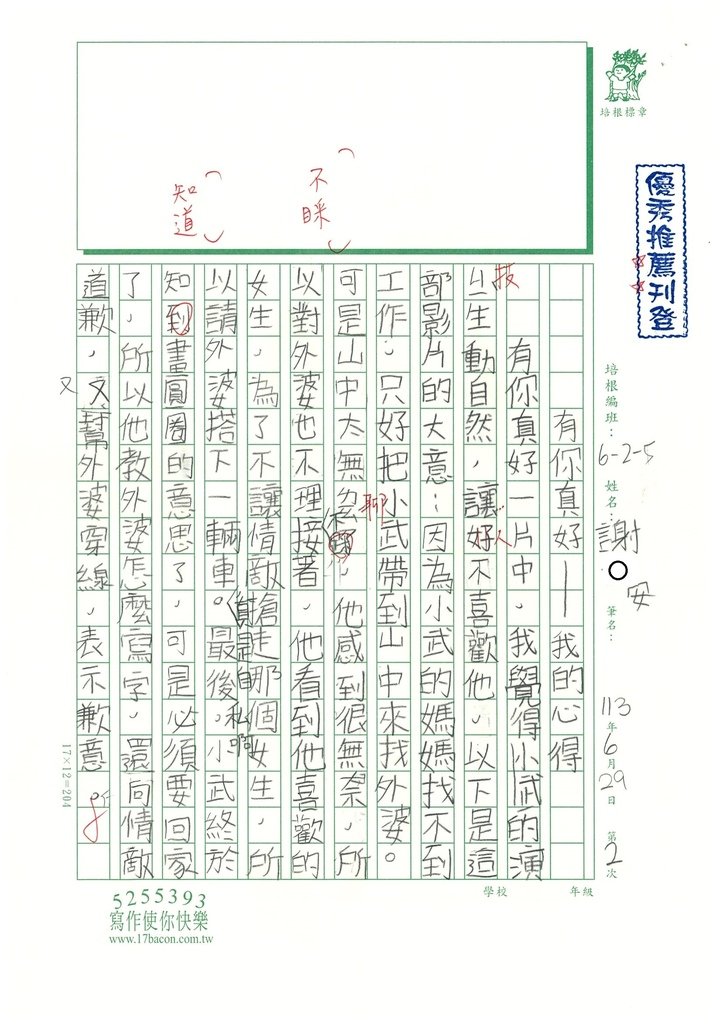 培根標章
優秀推薦刊登
不睬
知道
培根編班：6-2-5
姓名：謝○安
筆名：
113年6月29日 第2次
學校 年級
有你真好——我的心得
有你真好一片中，我覺得小武的演
技
ㄐ一生動自然，讓好人不喜歡他。以下是這
部影片的大意：因為小武的媽媽找不到
工作，只好把小武帶到山中來找外婆。
可是山中太無聊，他感到很無奈，所
以對外婆也不理接著，他看到他喜歡的
女生，為了不讓情敵搶走那個女生，所
真是自私啊
以請外婆搭下一輛車。最後，小武終於
知到畫圓圈的意思了，可是必須要回家
了，所以他教外婆怎麼寫字，還向情敵
道歉，又幫外婆穿線，表示歉意。
又
17×12=204
5255393
寫作使你快樂
www.17bacon.com.tw